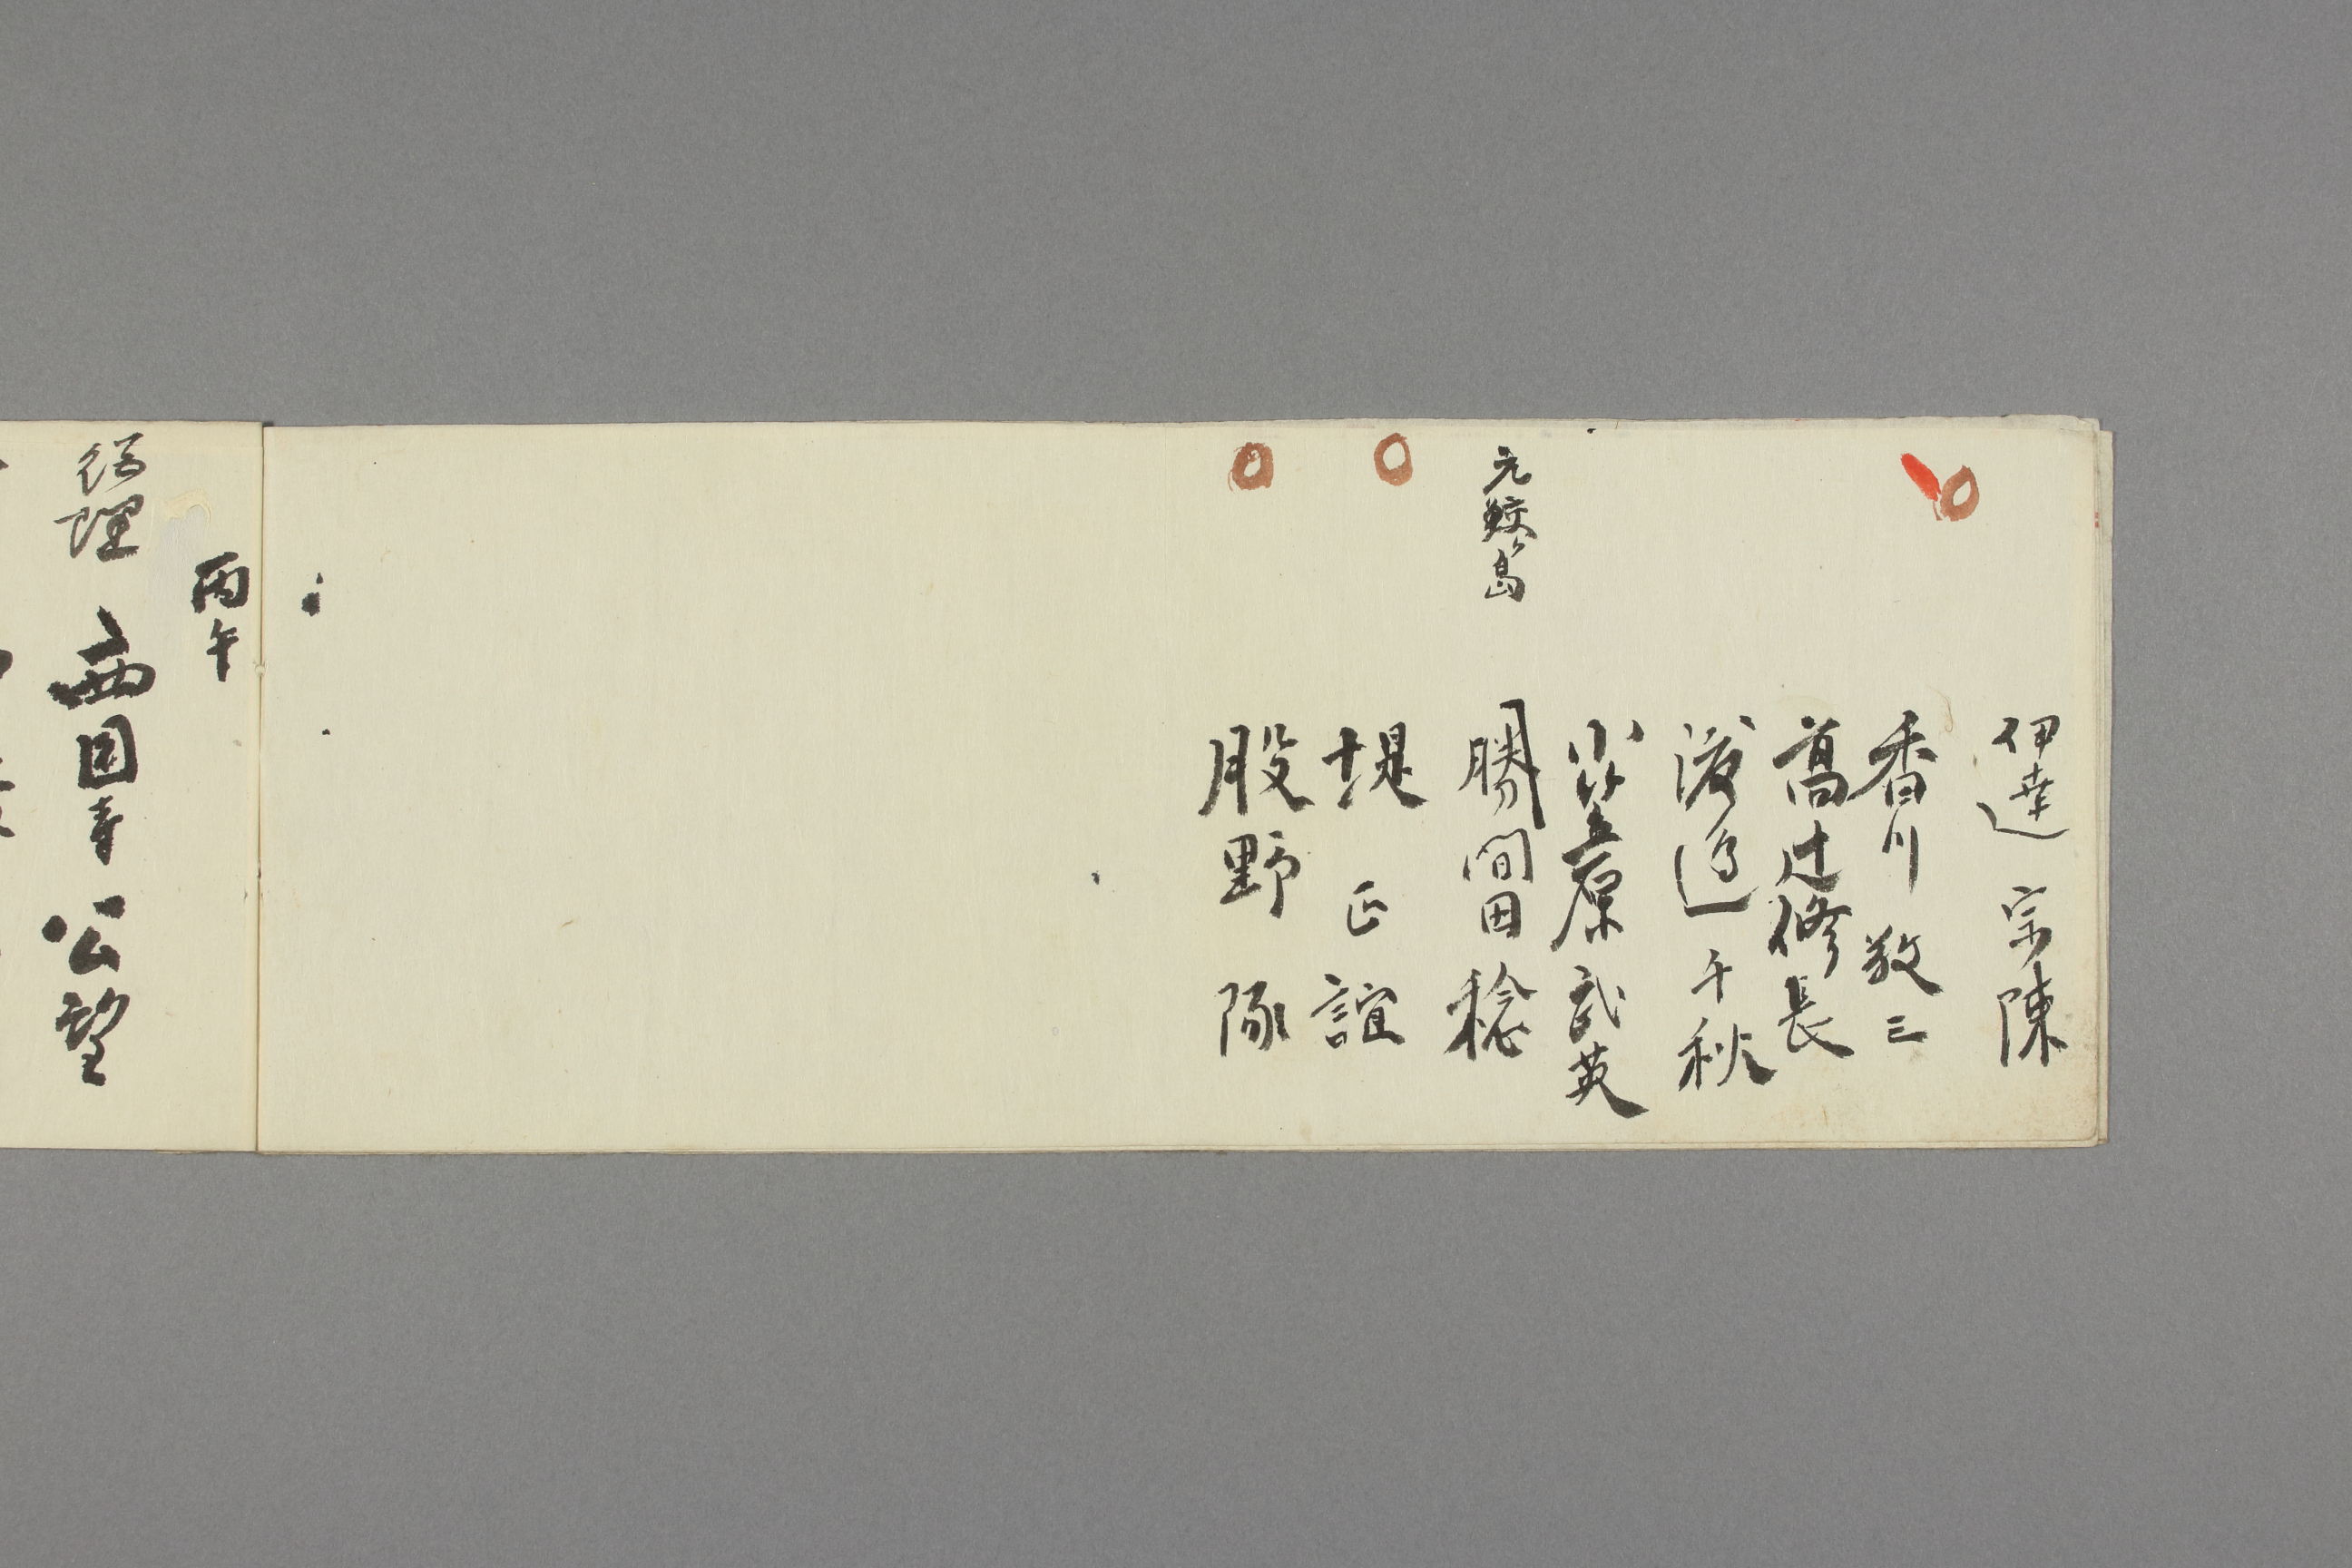 伊達宗陳
香川敬三
髙辻修長
渡邉千秋
小笠原武英
元鮫ヶ島
勝間田稔
堤正誼
股野琢
丙午
総理 西园寺公望